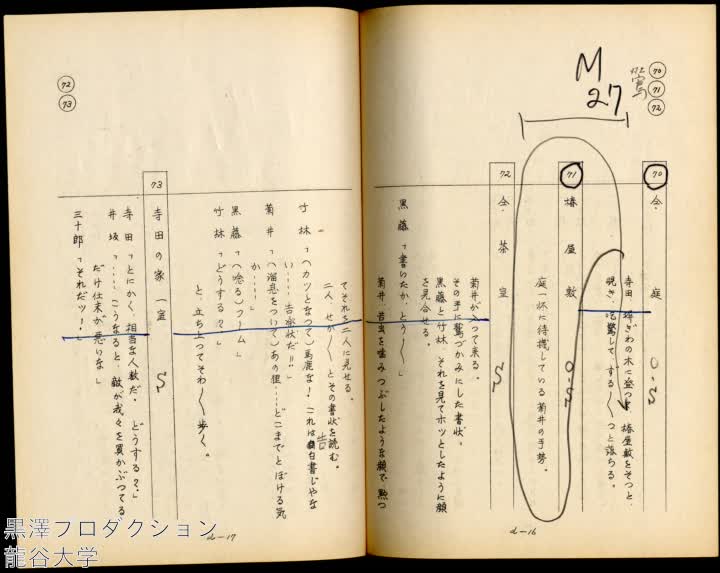 70
71
72
M
27
70 仝 庭 O・S
寺田、塀ぎわの木に登つて、椿屋敷をそつと
覗き、吃驚して、する〱つと落ちる。
71 椿屋敷 O・S
庭一杯に待機している菊井の手勢。
72 仝 茶室 S
菊井が入つて来る。
その手に鷲づかみにした書状。
黒藤と竹林、それを見てホツとしたように顔
を見合せる。
黒藤「書いたか、とう〱」
菊井、苦虫を噛みつぶしたような顔で、黙つ
d-16
72
73
てそれを二人に見せる。
二人、せか〱とその書状を読む。
竹林「(カツとなつて)馬鹿な! これは白書じやな
告
い……告発状だ!!」
菊井「(溜息をついて)あの狸……どこまでとぼける気
か……」
黒藤「(唸る)フーム」
竹林「どうする?」
と、立ち上つてそわ〱歩く。
73 寺田の家 一室 S
寺田「とにかく、相当な人数だ。どうする?」
井坂「……こうなると、敵が我々を買かぶつてる
だけ仕末が悪いな」
三十郎「それだツ!」
d-17
黒澤プロダクション
龍谷大学